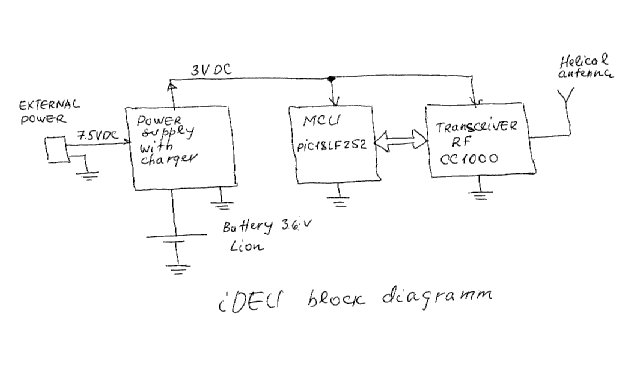 3V DC
Helical
antenna
EXTERNAL
POWER
7.5VDC
POWER
supply
with
charger
MCU
PIC18LF252
TRANSCEIVER
RF
CC1000
Battery 3.6V
Lion
block diagramm